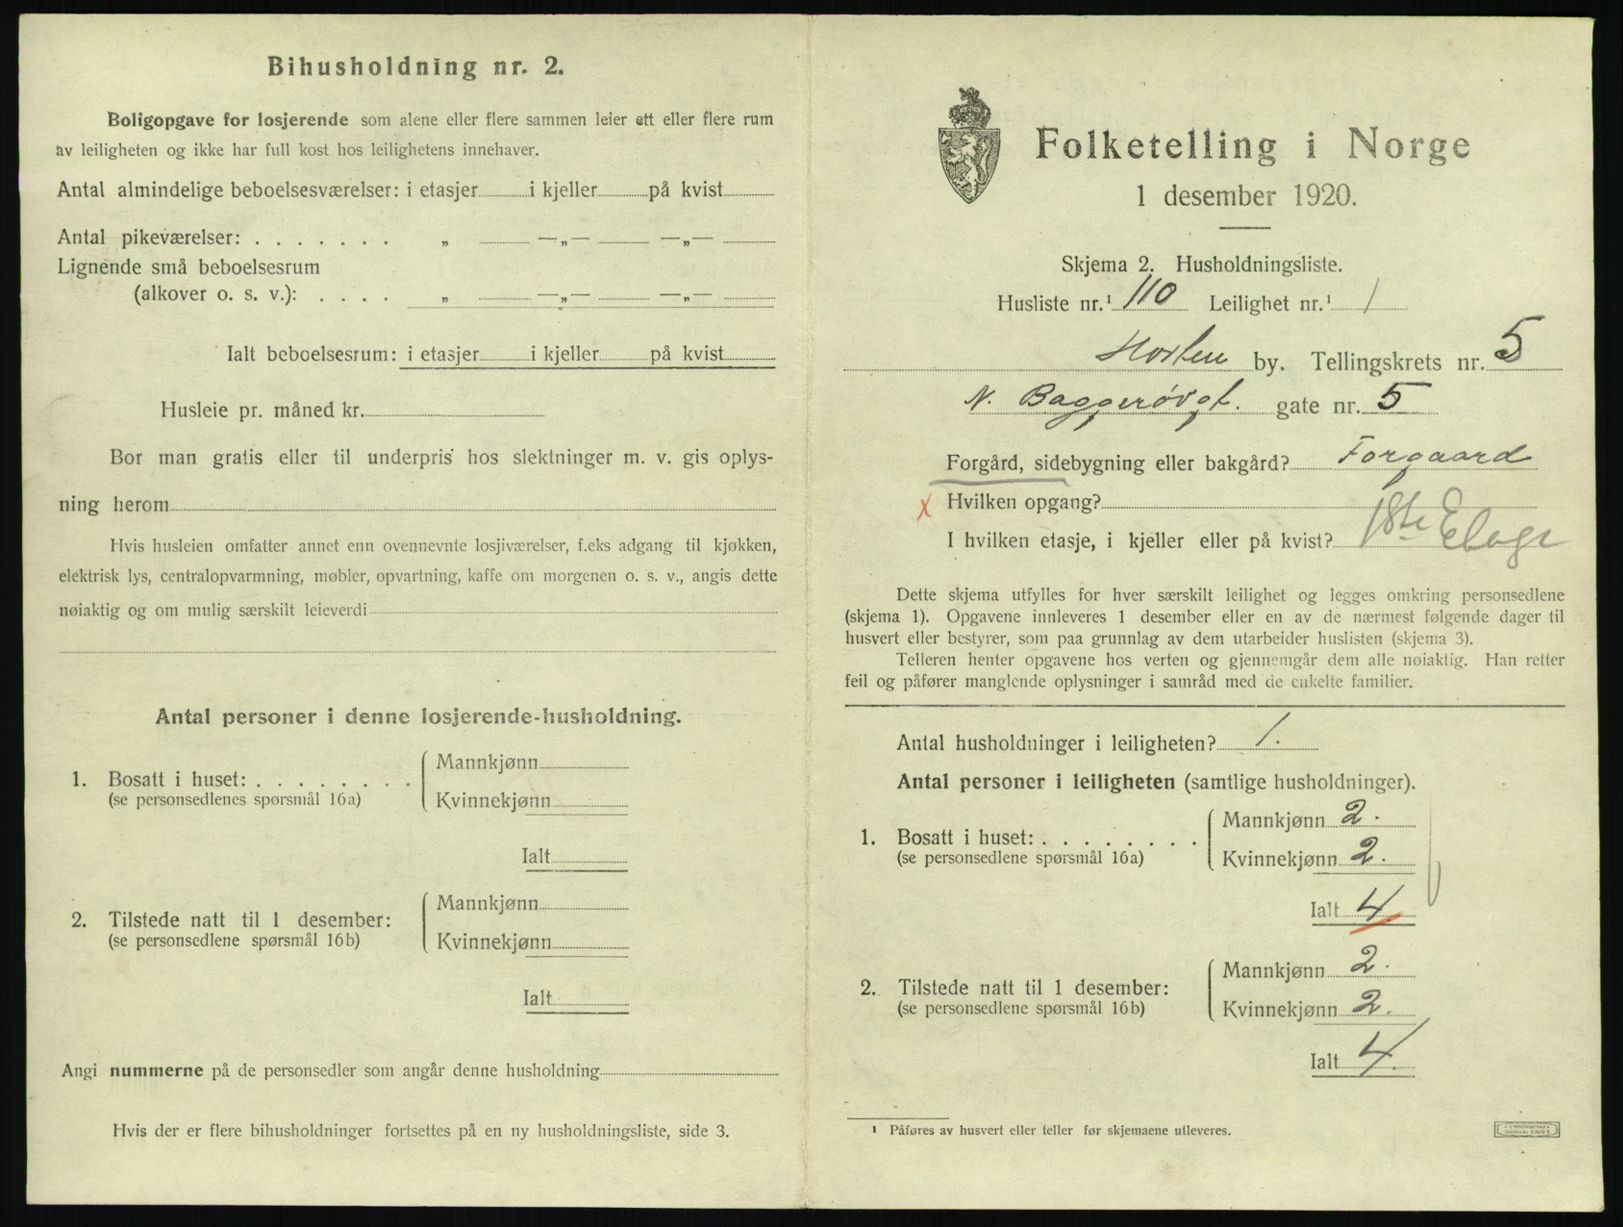 Bihusholdning nr. 2.
Boligopgave for losjerende som alene eller flere sammen leier ett eller flere rum
av leiligheten og ikke har full kost hos leilighetens innehaver.
Antal almindelige beboelsesværelser: i etasjer i kjeller på kvist
Antal pikeværelser: . . . . . . . „ —„— —„—
Lignende små beboelsesrum
(alkover o. s. v.): . . . . „ —„— —„—
Ialt beboelsesrum: i etasjer i kjeller på kvist
Husleie pr. måned kr.
Bor man gratis eller til underpris hos slektninger m. v. gis oplys-
ning herom
Hvis husleien omfatter annet enn ovennevnte losjiværelser, f.eks adgang til kjøkken,
elektrisk lys, centralopvarmning, møbler, opvartning, kaffe om morgenen o. s. v., angis dette
nøiaktig og om mulig særskilt leieverdi
Antal personer i denne losjerende-husholdning.
1. Bosatt i huset: . . . . . . . .
(se personsedlenes spørsmål 16a)
Mannkjønn
Kvinnekjønn
Ialt
2. Tilstede natt til 1 desember:
(se personsedlene spørsmål 16b)
Mannkjønn
Kvinnekjønn
Ialt
Angi nummerne på de personsedler som angår denne husholdning
Hvis der er flere bihusholdninger fortsettes på en ny husholdningsliste, side 3.
Folketelling i Norge
1 desember 1920.
Skjema 2. Husholdningsliste.
Husliste nr.¹ 110 Leilighet nr.¹ 1
Horten by. Tellingskrets nr. 5
N. Baggerøvgt. gate nr. 5
Forgård, sidebygning eller bakgård? Forgaard
x Hvilken opgang?
I hvilken etasje, i kjeller eller på kvist? 1ste
Dette skjema utfylles for hver særskilt leilighet og legges omkring personsedlene
(skjema 1). Opgavene innleveres 1 desember eller en av de nærmest følgende dager til
husvert eller bestyrer, som paa grunnlag av dem utarbeider huslisten (skjema 3).
Telleren henter opgavene hos verten og gjennemgår dem alle nøiaktig. Han retter
feil og påfører manglende oplysninger i samråd med de enkelte familier.
Antal husholdninger i leiligheten? 1.
Antal personer i leiligheten (samtlige husholdninger).
1. Bosatt i huset: . . . . . . . .
(se personsedlene spørsmål 16a)
Mannkjønn 2.
Kvinnekjønn 2.
Ialt 4
2. Tilstede natt til 1 desember:
(se personsedlene spørsmål 16b)
Mannkjønn 2.
Kvinnekjønn 2.
Ialt 4.
¹ Påføres av husvert eller teller før skjemaene utleveres.